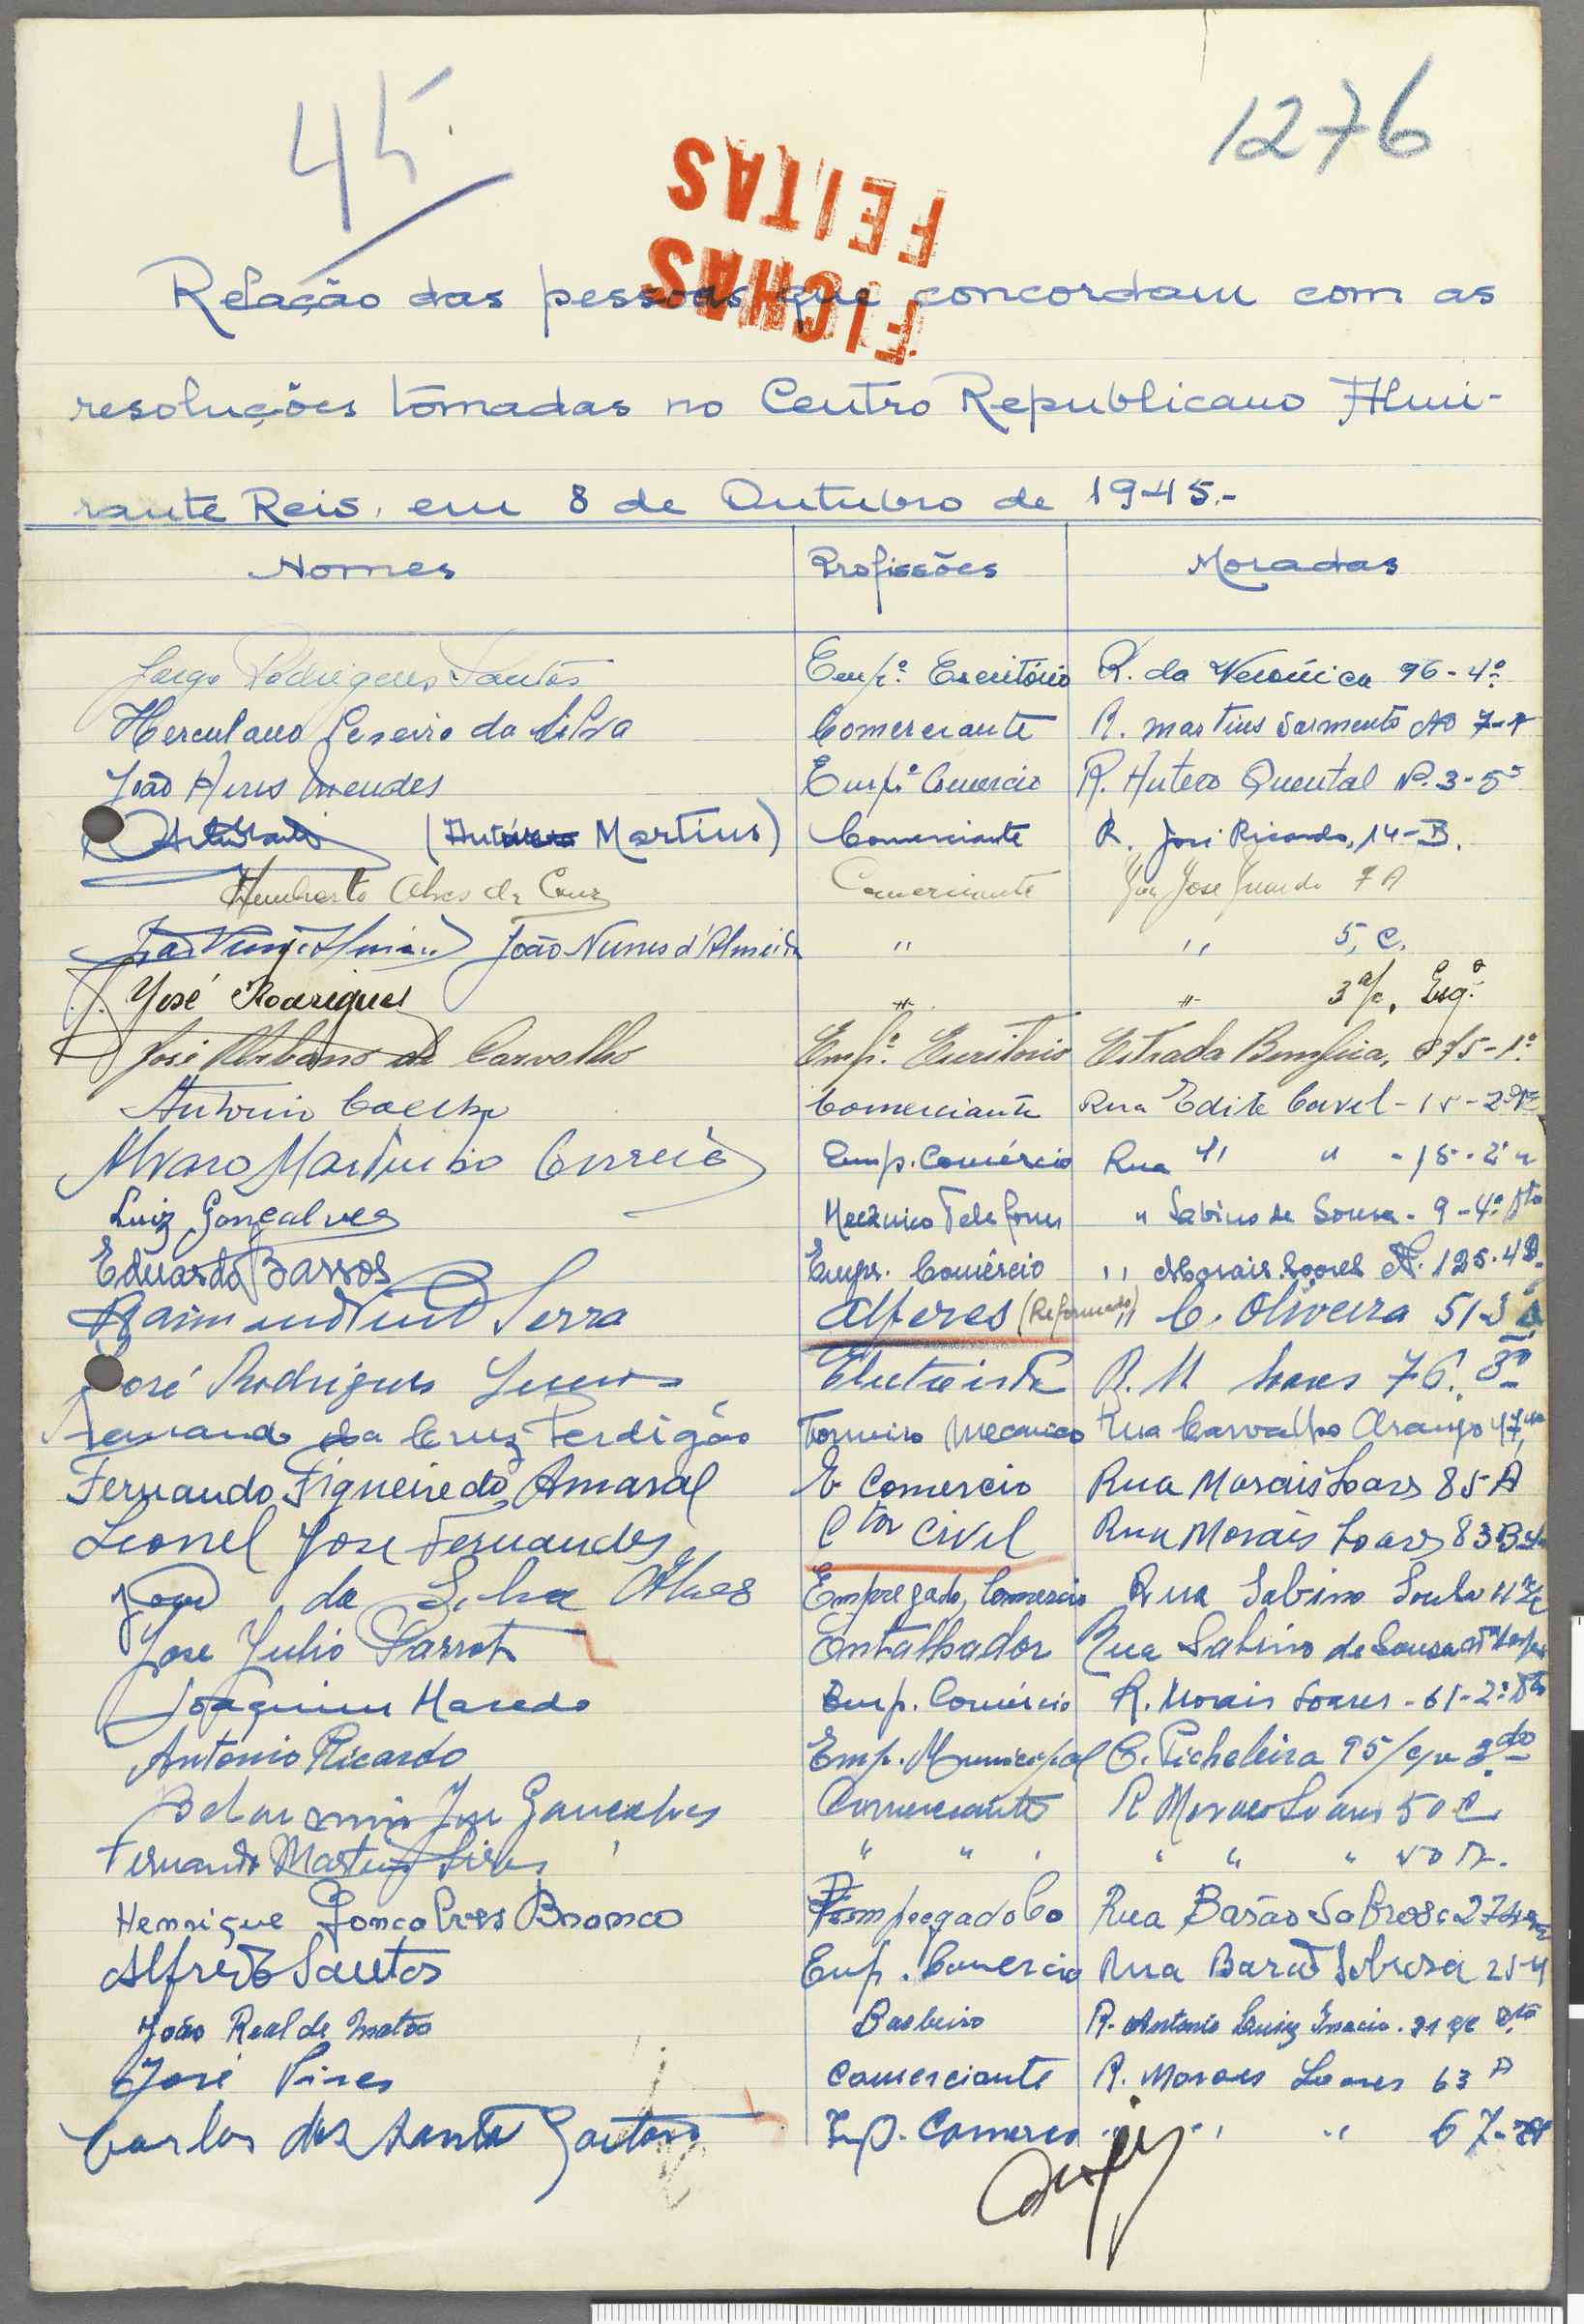 45
1276
FICHAS
FEITAS
Relação das pessoas que concordam com as
resoluções tomadas no Centro Republicano Almi-
rante Reis, em 8 de Outubro de 1945.-
Nomes Profissões Moradas
Jorge Rodrigues Santos Emp.º Escritório R. da Verónica 96-4º
Herculano da Silva Comerciante R. Martins Sarmento Nº 7-
João Aires Mendes Emp.º Comercio R. Antero Quental Nº 3-5º
(Martins) Comerciante R. José Ricardo, 14-B.
Humberto Alves da Cruz Comerciante José 7 A
João Nunes d'Almeida " " 5, C.
José Rodrigues " " 3 Esq.º
José Urbano de Carvalho Emp.º Escritorio Estrada Benfica, 675-1º
Antonio Coelho Comerciante Rua Edite Cavel - 15-2º
Alvaro Martinho Correia Emp. Comércio Rua " " - 15-2º "
Luiz Gonçalves Mecânico Telefones " Sabino de Sousa - 9-4º Dto
Eduardo Barros Empr. Comércio " Morais Soares Nº 125-4º
Serra Alferes (Reformado) " C. Oliveira 51-3º
José Rodrigues Electricista R. M. Soares 76, 3º
da Cruz Perdigão Torneiro Mecanico Rua Carvalho Araujo 47
Fernando Figueiredo Amaral E Comercio Rua Morais Soares 85-A
Leonel José Fernandes Ctor Civil Rua Morais Soares 83B
da Silva Alves Empregado Comercio Rua Sabino Sousa
José Julio Parrot Entalhador Rua Sabino de Sousa
Joaquim Macedo Emp. Comércio R. Morais Soares - 61-2º Dto
Antonio Ricardo Emp. Municipal C. Picheleira 95
Belarmino Gonçalves Comerciante R Moraes Soares 50 C
Fernando Martins " " " " "
Henrique Gonçalves Branco Empregado Co Rua Barão Sabrosa 274
Alfredo Santos Emp. Comercio Rua Barão Sabrosa
João Real de Matos Barbeiro R. Antonio Luiz Inacio
José Pires Comerciante R. Moraes Soares 63 A
Carlos dos Santos Caetano Emp. Comercio " " 67